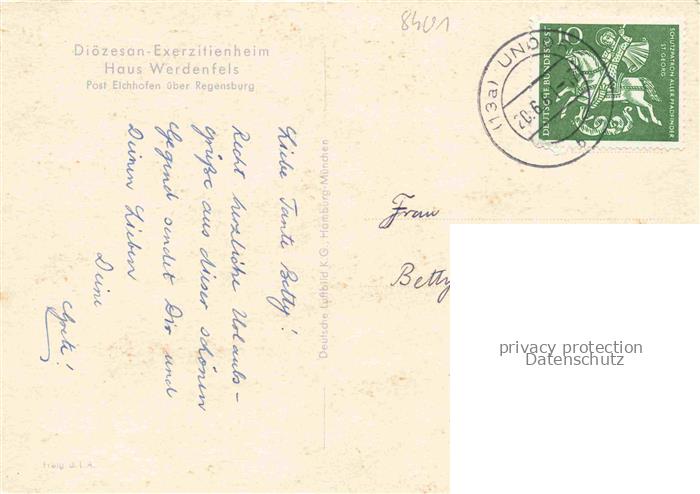 8401
Diözesan-Exerzitienheim
Haus Werdenfels
Post Eichhofen über Regensburg
Liebe Tante Betty!
Recht herzliche Urlaubs-
grüße aus dieser schönen
Gegend sendet Dir und
Deinen Lieben
Deine
Gretl!
Deutsche Luftbild K.G., Hamburg-München
(13a) UNDO
20.6
b
10
DEUTSCHE BUNDESPOST
SCHUTZPATRON ALLER PFADFINDER
ST. GEORG
Frau
Betty
privacy protection
Datenschutz
Freig. d. L.A.